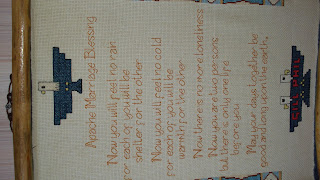 Apache Marriage Blessing
Now you will feel no rain
for each of you will be
shelter for the other
Now you will feel no cold
for each of you will be
warmth for the other
Now there is no more loneliness
Now you are two persons
but there is only one life
before you
May your days together be
good and long upon the earth.